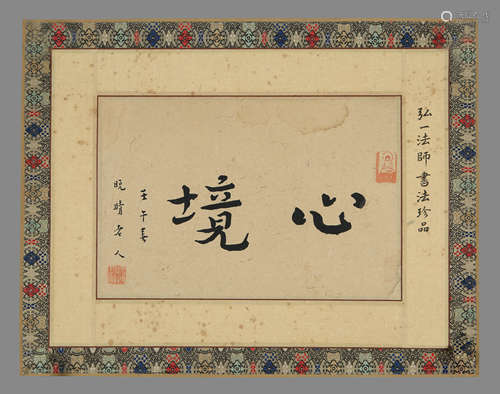 弘一法師書法珍品
心境
壬午春
晚晴老人